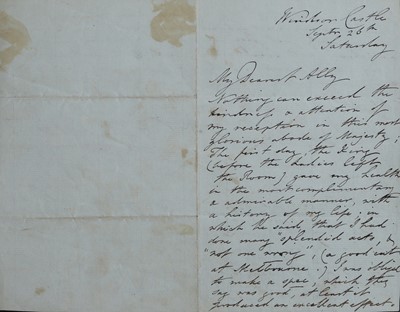 Windsor Castle
Septr 26th
Saturday
My Dearest Ally
Nothing can exceed the
kindness & attention of
my reception in this most
glorious abode of Majesty;
The first day, the King
(before the Ladies left
the Room) gave my health
in the most complimentary
& admirable manner, with
a history of my life, in
which he said, that I had
done many "splendid acts, &
"not one wrong"; (a good cut
at Melbourne:) I was obliged
to make a speech, which they
say was good, at least it
produced an excellent effect.